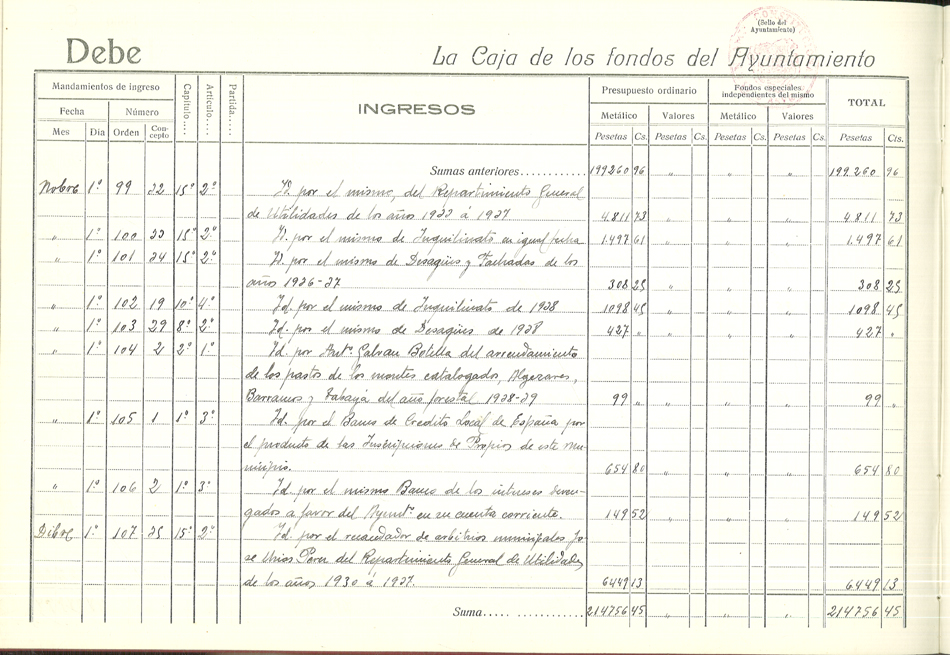 Debe
La Caja de los fondos del Ayuntamiento
(Sello del Ayuntamiento)
Mandamientos de ingreso
Fecha Número
Mes Día Orden Concepto
Capítulo.... Artículo.... Partida.....
INGRESOS
Presupuesto ordinario
Metálico Valores
Pesetas Cs. Pesetas Cs.
Fondos especiales independientes del mismo
Metálico Valores
Pesetas Cs. Pesetas Cs.
TOTAL
Pesetas Cts.
Sumas anteriores............ 199260 96 " " " 199.260 96
Nobre 1º 99 22 15º 2º Id. por el mismo, del Repartimiento General
de Utilidades de los años 1922 á 1927 4.811 73 " " " 4.811 73
" 1º 100 23 15º 2º Id. por el mismo de Inquilinato en igual fecha 1.497 61 " " " 1.497 61
" 1º 101 24 15º 2º Id. por el mismo de Desagües y Fachadas de los
años 1926-27 308 25 " " " 308 25
" 1º 102 19 10º 4º Id. por el mismo de Inquilinato de 1928 1098 45 " " " 1098 45
" 1º 103 29 8º 2º Id. por el mismo de Desagües de 1928 427 " " " " 427 "
" 1º 104 2 2º 1º Id. por Antº Galvan Botella del arrendamiento
de los pastos de los montes catalogados, Algezares,
Barrancos y Tabayá del año forestal 1928-29 99 " " " " 99 "
" 1º 105 1 1º 3º Id. por el Banco de Credito Local de España por
el producto de las Inscripciones de Propios de este mu-
nicipio. 654 80 " " " 654 80
" 1º 106 2 1º 3º Id. por el mismo Banco de los intereses deven-
gados a favor del Ayuntº en su cuenta corriente. 149 52 " " " 149 52
Dibre 1º 107 25 15º 2º Id. por el recaudador de arbitrios municipales Jo-
se Perez del Repartimiento General de Utilidades
de los años á 1927. 6449 13 " " " 6449 13
Suma..... ............ 214756 45 " " " 214756 45